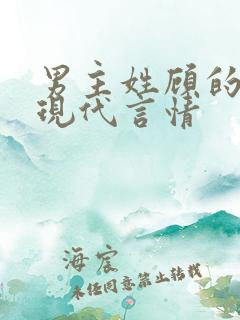 男主姓顾的
现代言情
海宸
未经同意禁止转载